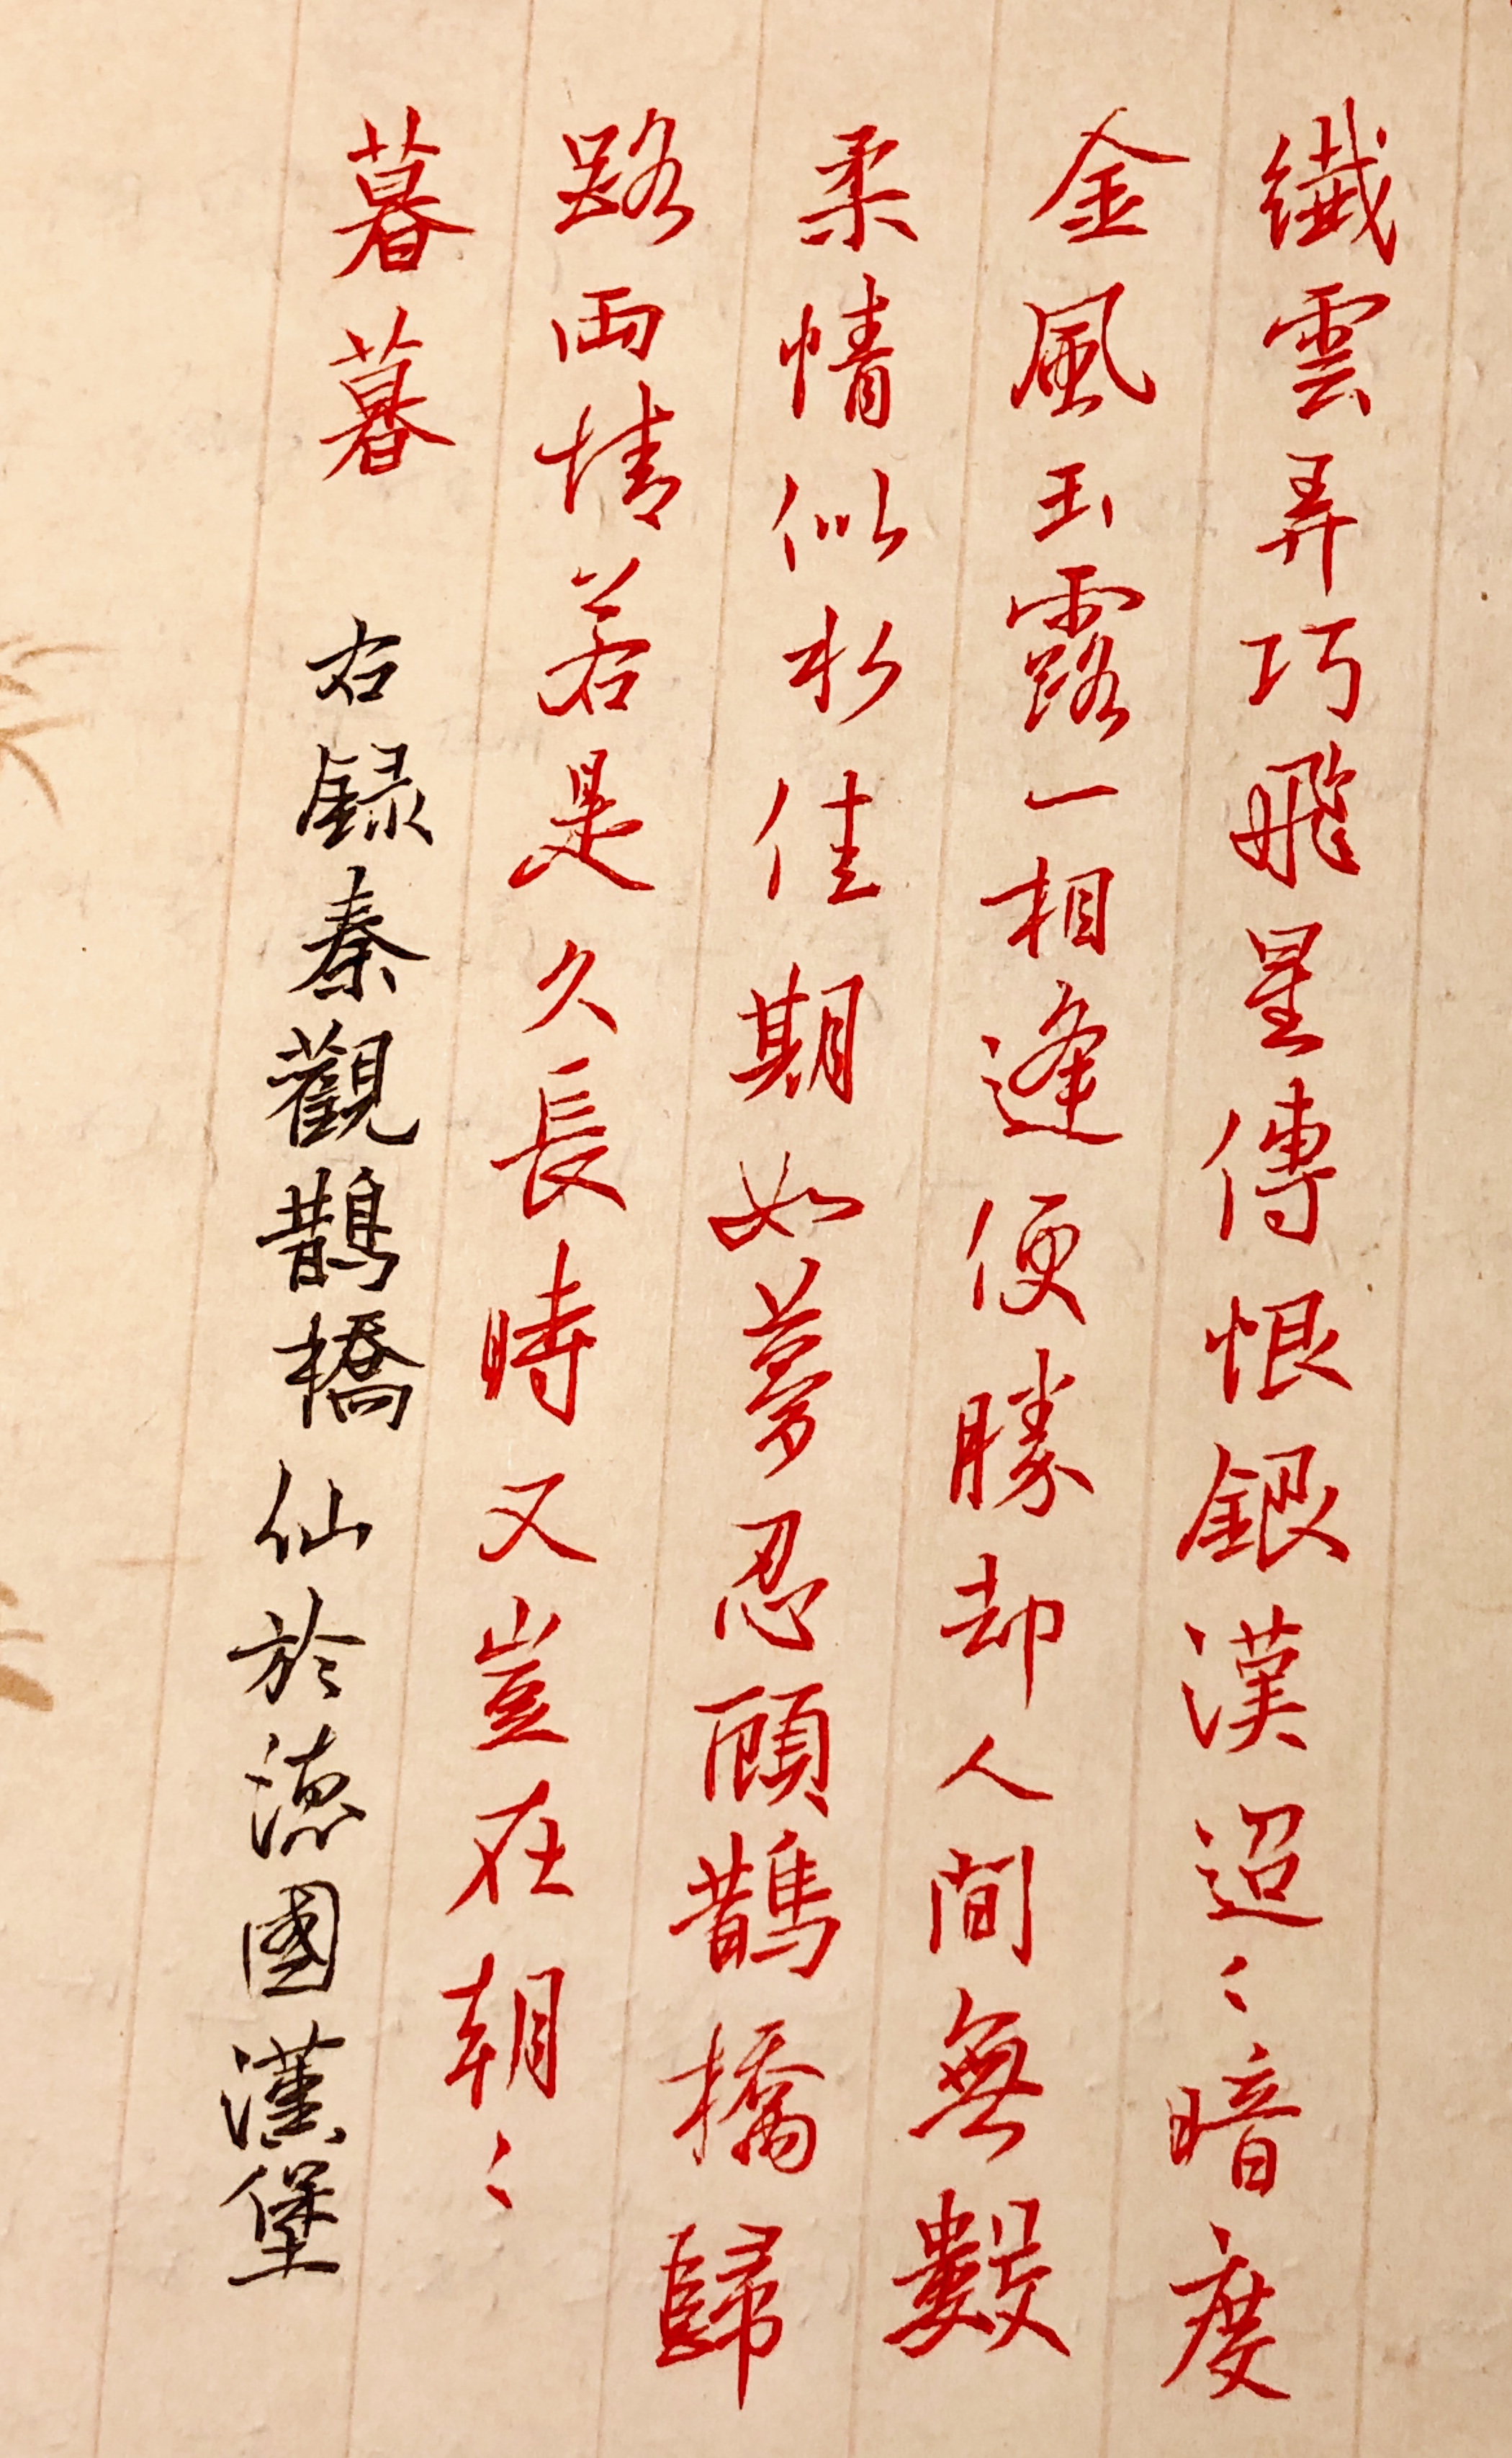 纖雲弄巧飛星傳恨銀漢迢〻暗度
金風玉露一相逢便勝却人間無數
柔情似水佳期如夢忍顧鵲橋歸
路兩情若是久長時又豈在朝〻
暮暮
右録秦觀鵲橋仙於德國漢堡